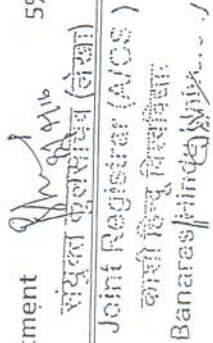 tment
59
संयुक्त कुलसचिव (लेखा)
Joint Registrar (A/Cs)
काशी हिन्दू विश्वविद्यालय
Banaras Hindu